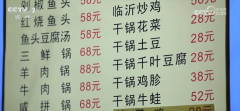 CCTV 2
剁椒鱼头 58元
红烧鱼头 58元
鱼头豆腐汤 58元
三鲜锅 68元
羊肉锅 88元
狗肉锅 88元
咸拼锅 68元
临沂炒鸡
干锅花菜 28元
干锅土豆 28元
干锅千叶豆腐 28元
干锅鸡胗 38元
干锅牛蛙 52元